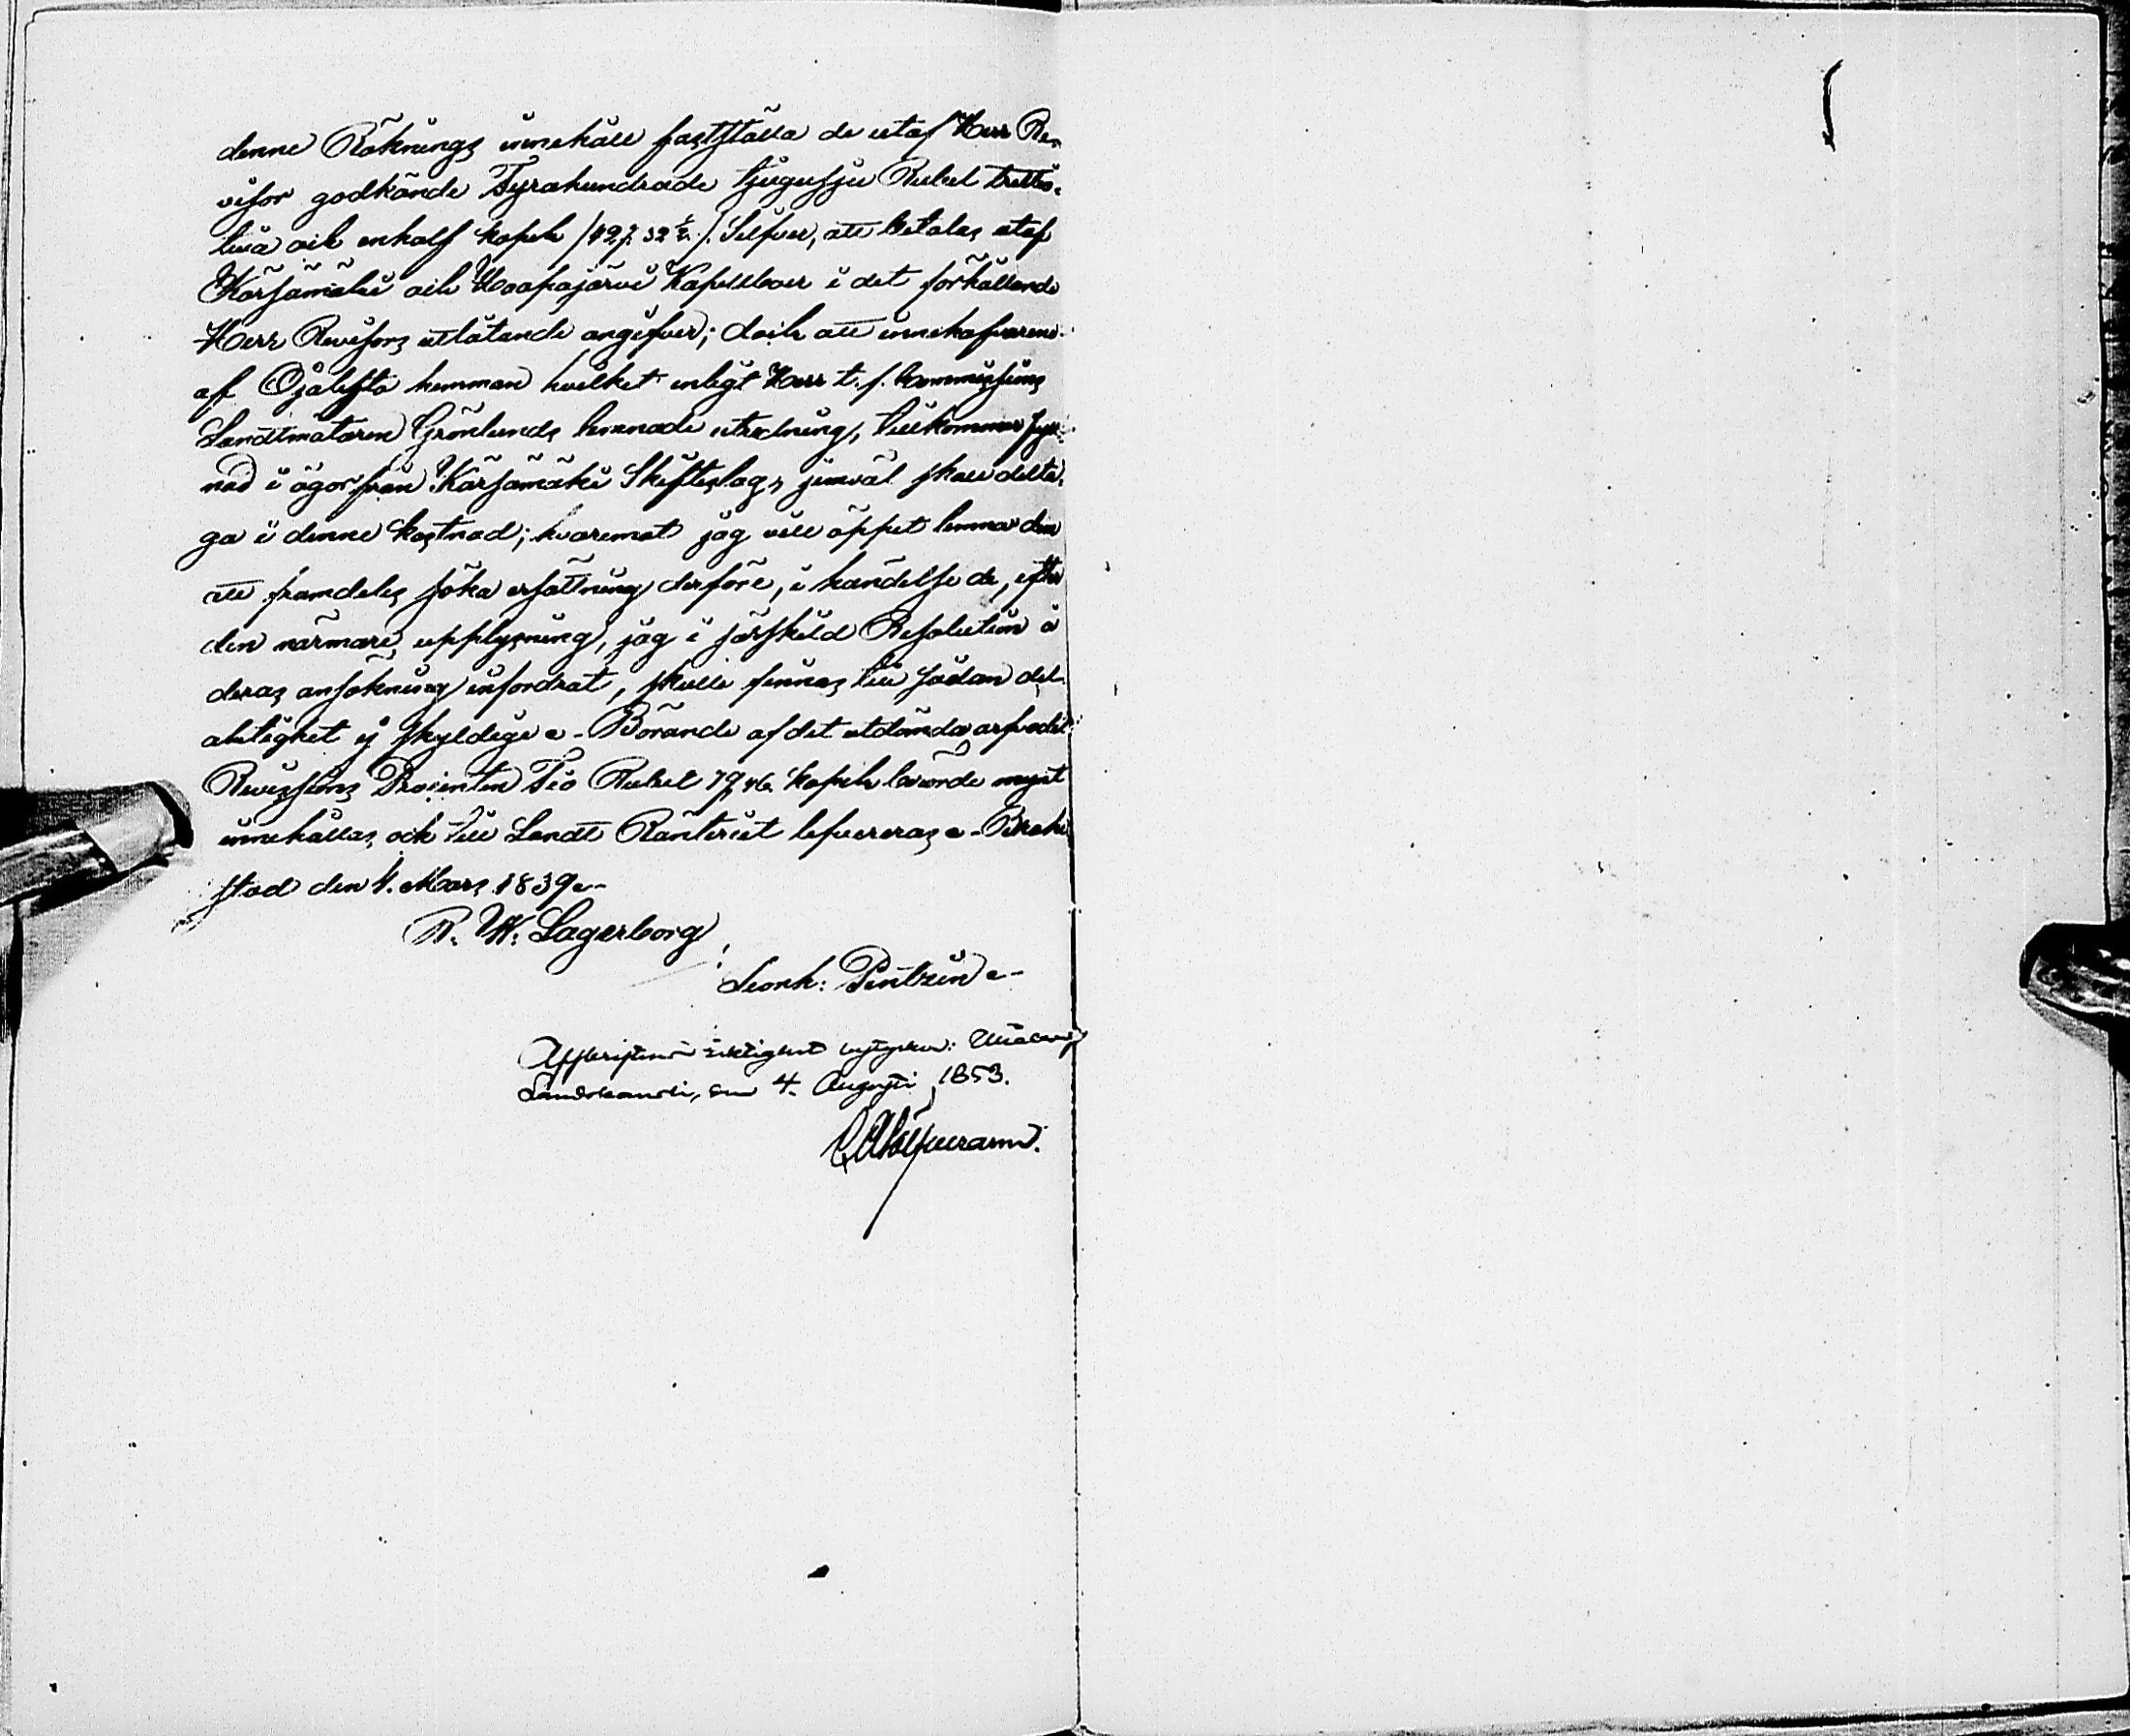 denne Räknings innehåll fastställa de utaf Herr Re-
visor godkände Fyrahundrade tjugusju Rubel trettio-
två och enhalf kopek /427. 32 ½./. Silfver, att betalas utaf
Kärsämäki och Haapajärvi Kapellboer i det förhållande
Herr Revisors utlåtande angifver; doch att innehafvarene
af Ojalehto hemman hvilket enligt Herr t. f. Commissions
Landtmätaren Grönlunds lemnade utredning, tillkommer fyll-
nad i ägor från Kärsämäki Skifteslag, jemväl skall delta-
ga i denne kostnad; hvaremot jag vill öppet lemna dem
att framdeles söka ersättning derföre, i händelse de, efter
den närmare upplysning, jag i särskild Resolution å
deras ansökning infordrat, skulle finnas till sådan del-
aktighet ej skyldige. Börande af det utdömda arfvodet
Revisions Procenten Tio Rubel 79 46 kopek bemälde mynt
innehållas, och till Landt Ränteriet lefvereras. Brahe
stad den 4. Mars 1839.
R. W. Lagerborg
Leonh: Pentzin
Afskriftens riktighet betygar: Uleåborgs
Landtkansli, den 4. Augusti 1853.